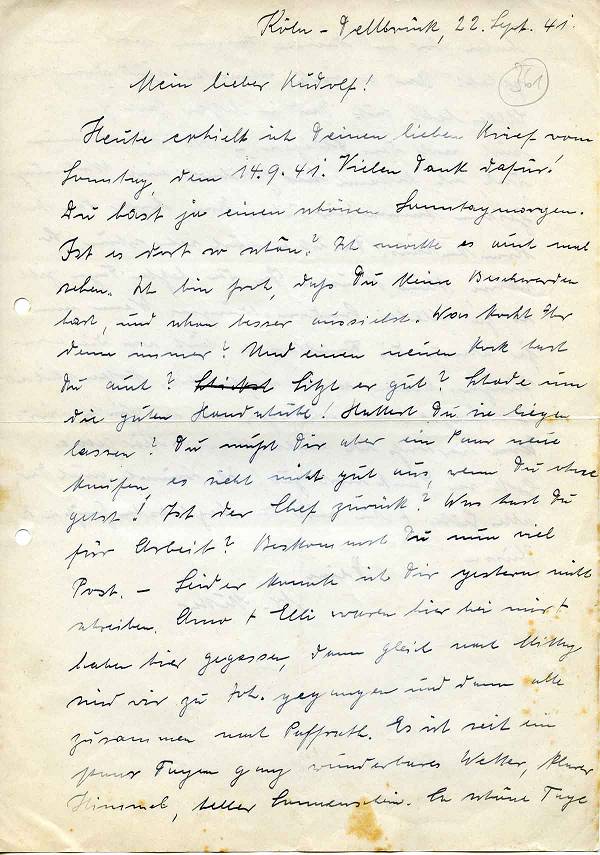 Köln-Dellbrück, 22. Sept. 41.
561
Mein lieber Rudolf!
Heute erhielt ich Deinen lieben Brief vom
Sonntag, dem 14.9.41. Vielen Dank dafür!
Du hast ja einen schönen Sonntagmorgen.
Ist es dort so schön? Ich möchte es auch mal
sehen. Ich bin froh, daß Du keine Beschwerden
hast, und schon besser aussiehst. Was kocht Ihr
denn immer? Und einen neuen Rock hast
Du auch? Sitzt er gut? Schade um
die guten Handschuhe! Hattest Du sie liegen
lassen? Du mußt Dir aber ein Paar neue
kaufen, es sieht nicht gut aus, wenn Du ohne
gehst! Ist der Chef zurück? Was hast Du
für Arbeit? Beskommst Du nun viel
Post. – Leider konnte ich Dir gestern nicht
schreiben. Arno + Elli waren hier bei mir +
haben hier gegessen, dann gleich nach Mittag
sind wir zu Joh. gegangen und dann alle
zusammen nach Paffrath. Es ist seit ein
paar Tagen ganz wunderbares Wetter, klarer
Himmel, heller Sonnenschein. So schöne Tage